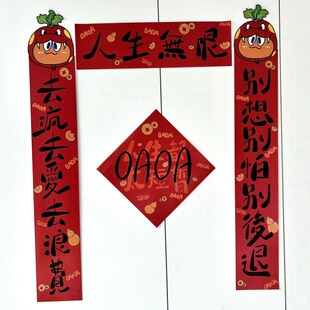 人生無限
去瘋去愛去浪費
別想別怕別後退
OAOA